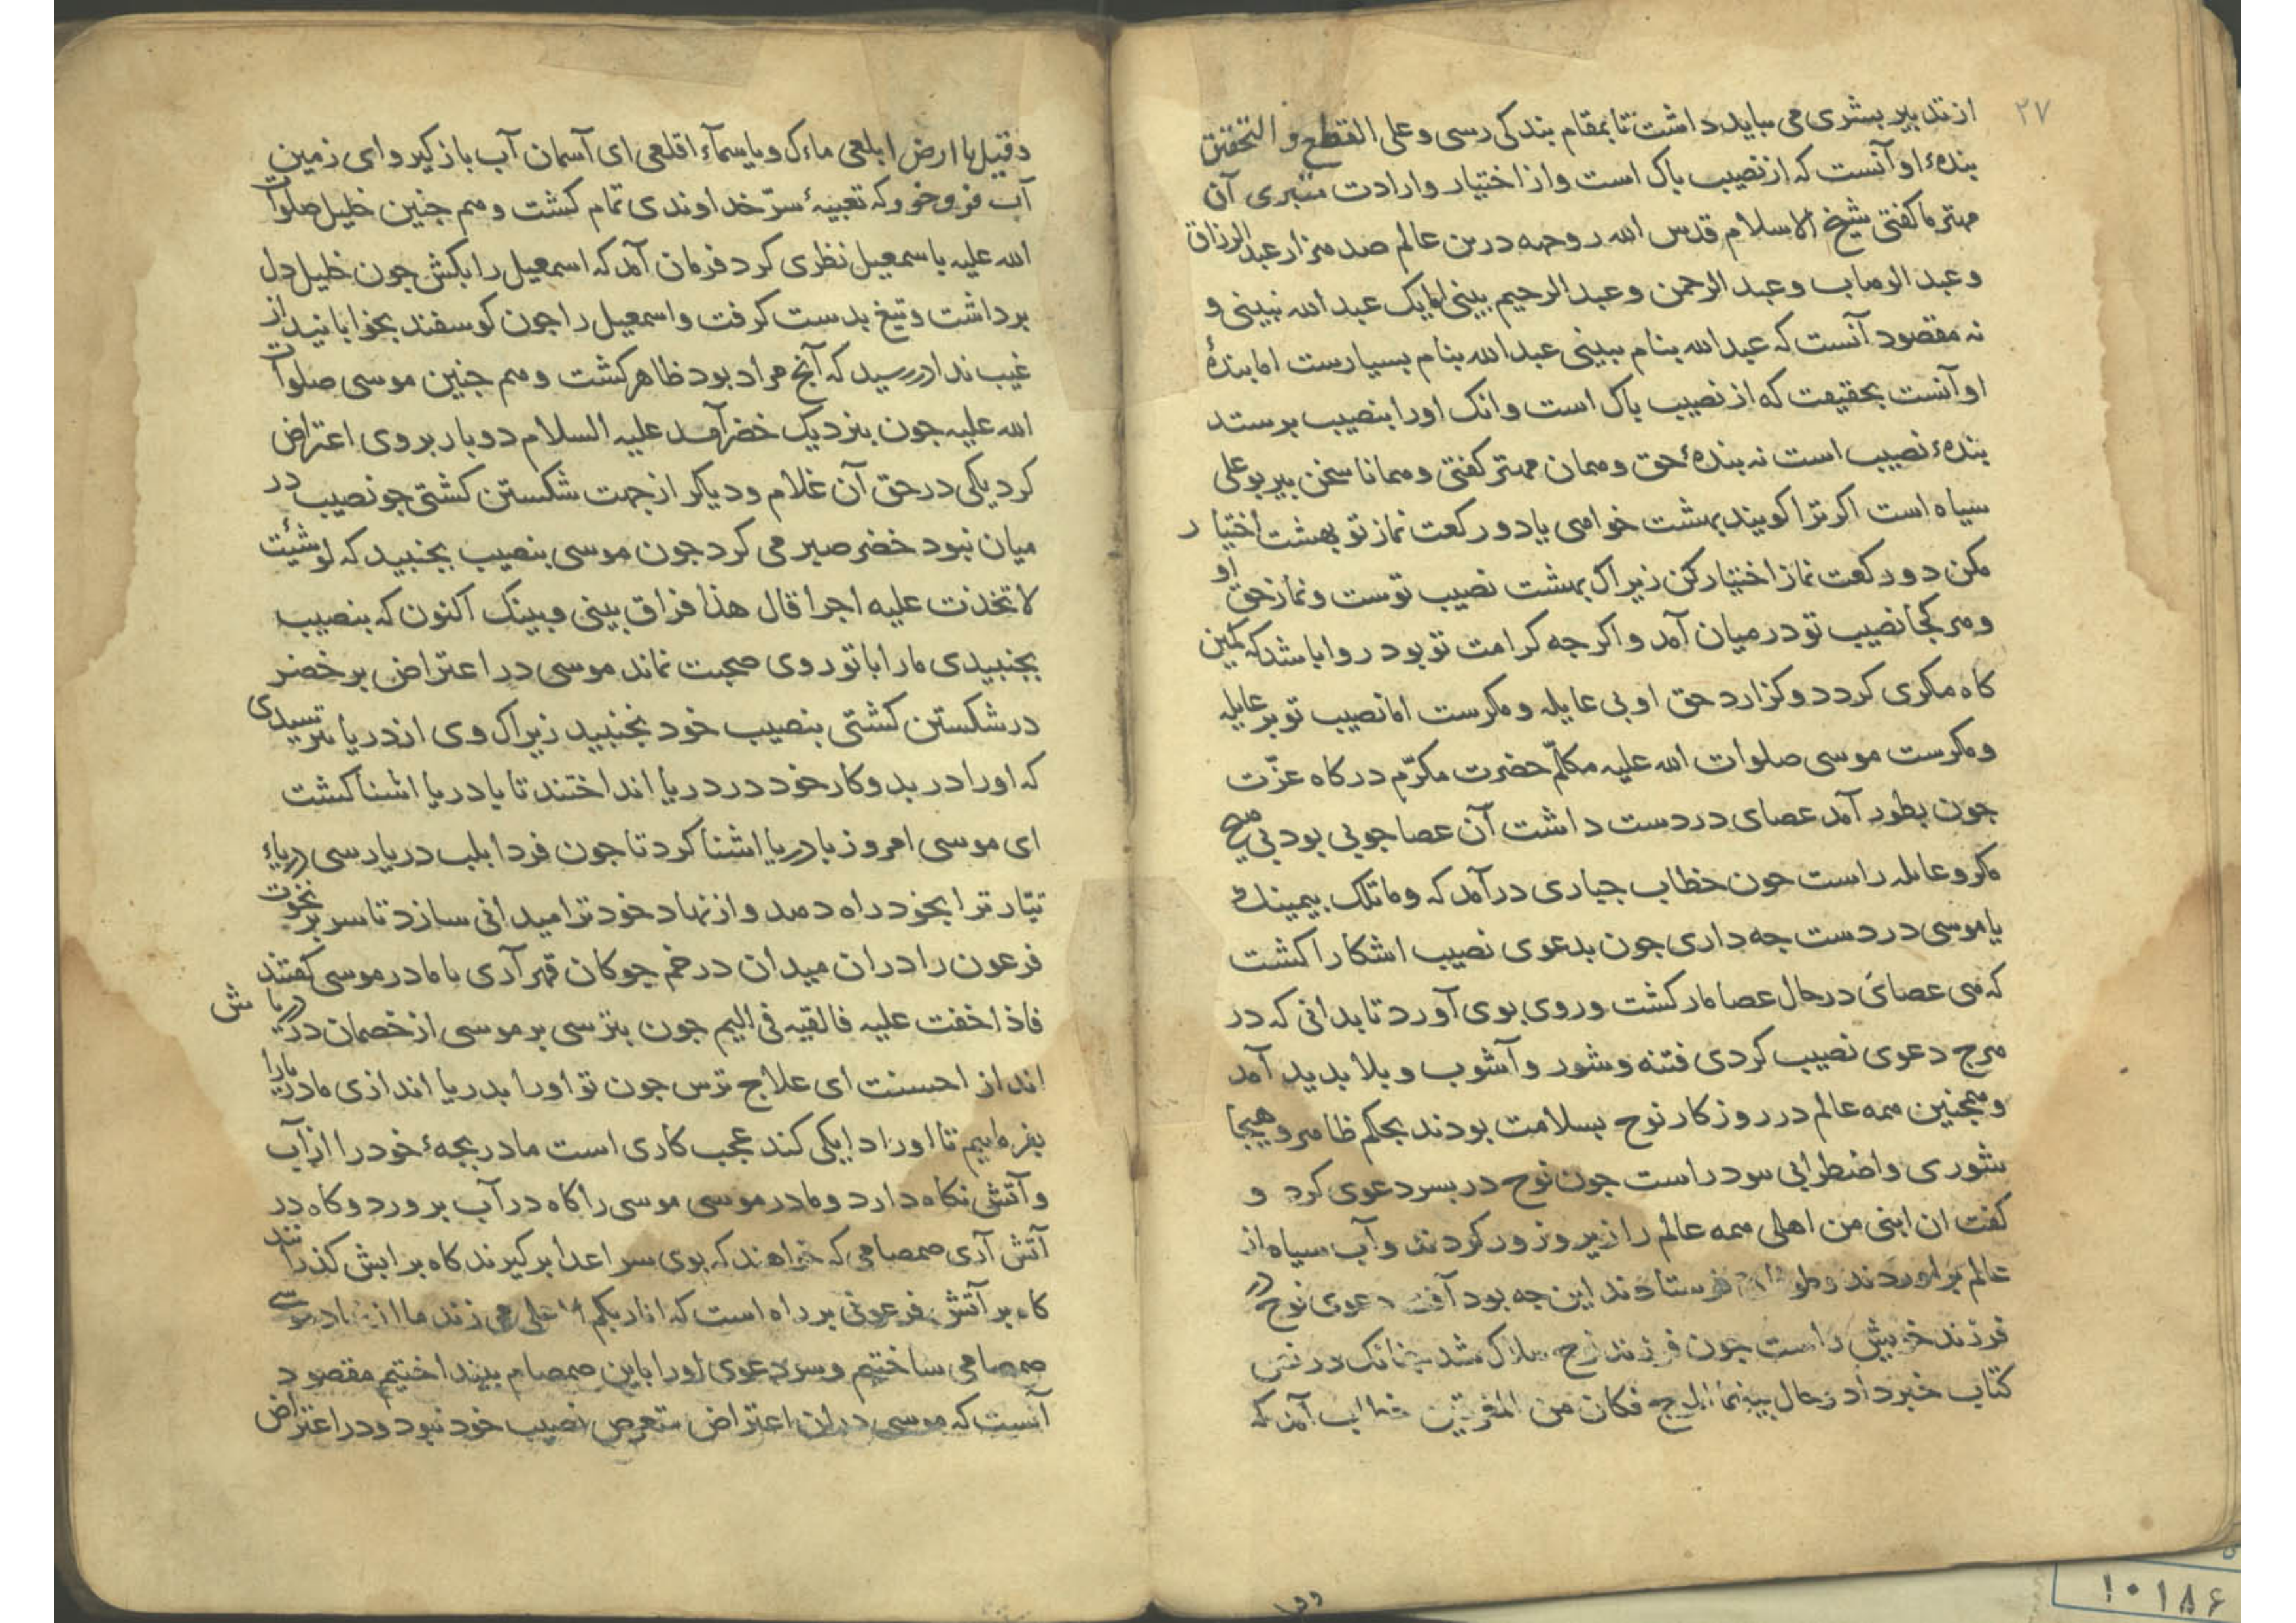 ۲۷
از تدبیر بشری می بباید داشت تا بمقام بندگی رسی و علی القطع و التحقیق
بندهٔ او آنست که از نصیب باک است و از اختیار و ارادت متبری آن
مهتر ما کفتی شیخ الاسلام قدس الله روحه درین عالم صد هزار عبد الرزاق
و عبد الوهاب و عبد الرحمن و عبد الرحیم بینی اما یک عبد الله نبینی و
نه مقصود آنست که عبد الله بنام ببینی عبد الله بنام بسیارست اما بندهٔ
او آنست بحقیقت که از نصیب باک است وانک او را بنصیب برستد
بندهٔ نصیب است نه بندهٔ حق و همان مهتر کفتی و همانا سخن بیر بوعلی
سیاه است اکر ترا کویند بهشت خواهی یا دو رکعت نماز تو بهشت اختیار
مکن دو رکعت نماز اختیار کن زیراک بهشت نصیب توست و نماز حق او
و هر کجا نصیب تو در میان آمد و اکر جه کرامت تو بود روا باشد که کمین
کاه مکری کردد و کزارد حق او بی عایله و مکرست اما نصیب تو بر عایله
و مکرست موسی صلوات الله علیه مکلّم حضرت مکرّم درکاه عزّت
جون بطور آمد عصای در دست داشت آن عصا جوبی بود بی هیچ
مکر و عایله راست جون خطاب جباری در آمد که وما تلک بیمینک
یا موسی در دست جه داری جون بدعوی نصیب اشکارا کشت
که هی عصای در حال عصا مار کشت و روی بوی آورد تا بدانی که در
هرج دعوی نصیب کردی فتنه و شور و آشوب و بلا بدید آمد
و همجنین همه عالم در روزکار نوح بسلامت بودند بحکم ظاهر و هیجا
شوری و اضطرابی نبود راست جون نوح در بسر دعوی کرد و
کفت ان ابنی من اهلی همه عالم را زیر و زبر کردند و آب سیاه از
عالم براوردند و طوفان فرستادند این جه بود آفت دعوی نوح در
فرزند خویش راست جون فرزند نوح هلاک شد جنانک در نص
کتاب خبر داد و حال بینهما الموج فکان من المغرقین خطاب آمد که
وقیل یا ارض ابلعی ماءک و یا سمآء اقلعی ای آسمان آب باز کیر و ای زمین
آب فرو خور که تعبیهٔ سرّ خداوندی تمام کشت و هم جنین خلیل صلوات
الله علیه با سمعیل نظری کرد فرمان آمد که اسمعیل را بکش جون خلیل دل
برداشت و تیغ بدست کرفت و اسمعیل را جون کوسفند بخوابانید از
غیب ندا در رسید که آنج مراد بود ظاهر کشت و هم جنین موسی صلوات
الله علیه جون بنزدیک خضر آمد علیه السلام دو بار بر وی اعتراض
کرد یکی در حق آن غلام و دیکر از جهت شکستن کشتی جو نصیب در
میان نبود خضر صبر می کرد جون موسی بنصیب بجنبید که لو شئت
لاتخذت علیه اجرا قال هذا فراق بینی و بینک اکنون که بنصیب
بجنبیدی ما را با تو روی صحبت نماند موسی در اعتراض بر خضر
در شکستن کشتی بنصیب خود نجنبید زیراک وی از دریا نترسیدی
که او را در بدو کار خود در دریا انداختند تا با دریا اشنا کشت
ای موسی امروز با دریا اشنا کرد تا جون فردا بلب دریا رسی دریاء
تیّار ترا بخود راه دهد و از نهاد خود ترا میدانی سازد تا سر بر نخوت
فرعون را در ان میدان در خم جوکان قهر آری با مادر موسی کفتند
فاذا خفت علیه فالقیه فی الیم جون بترسی بر موسی از خصمان در دریاش
انداز احسنت ای علاج ترس جون تو او را بدریا اندازی ما دریا را
بفرماییم تا او را دایکی کند عجب کاری است مادر بجهٔ خود را از آب
و آتش نکاه دارد و مادر موسی موسی را کاه در آب برورد و کاه در
آتش آری صمصامی که خواهند که بوی سر اعدا برکیرند کاه بر ابش کذرانند
کاه بر آتش فرعونی بر راه است که انا ربکم الاعلی می زند ما از نهاد موسی
صمصامی ساختیم و سر دعوی او را باین صمصام بینداختیم مقصود
آنست که موسی در ان اعتراض متعرض نصیب خود نبود و در اعتراض
۱۰۱۸۶